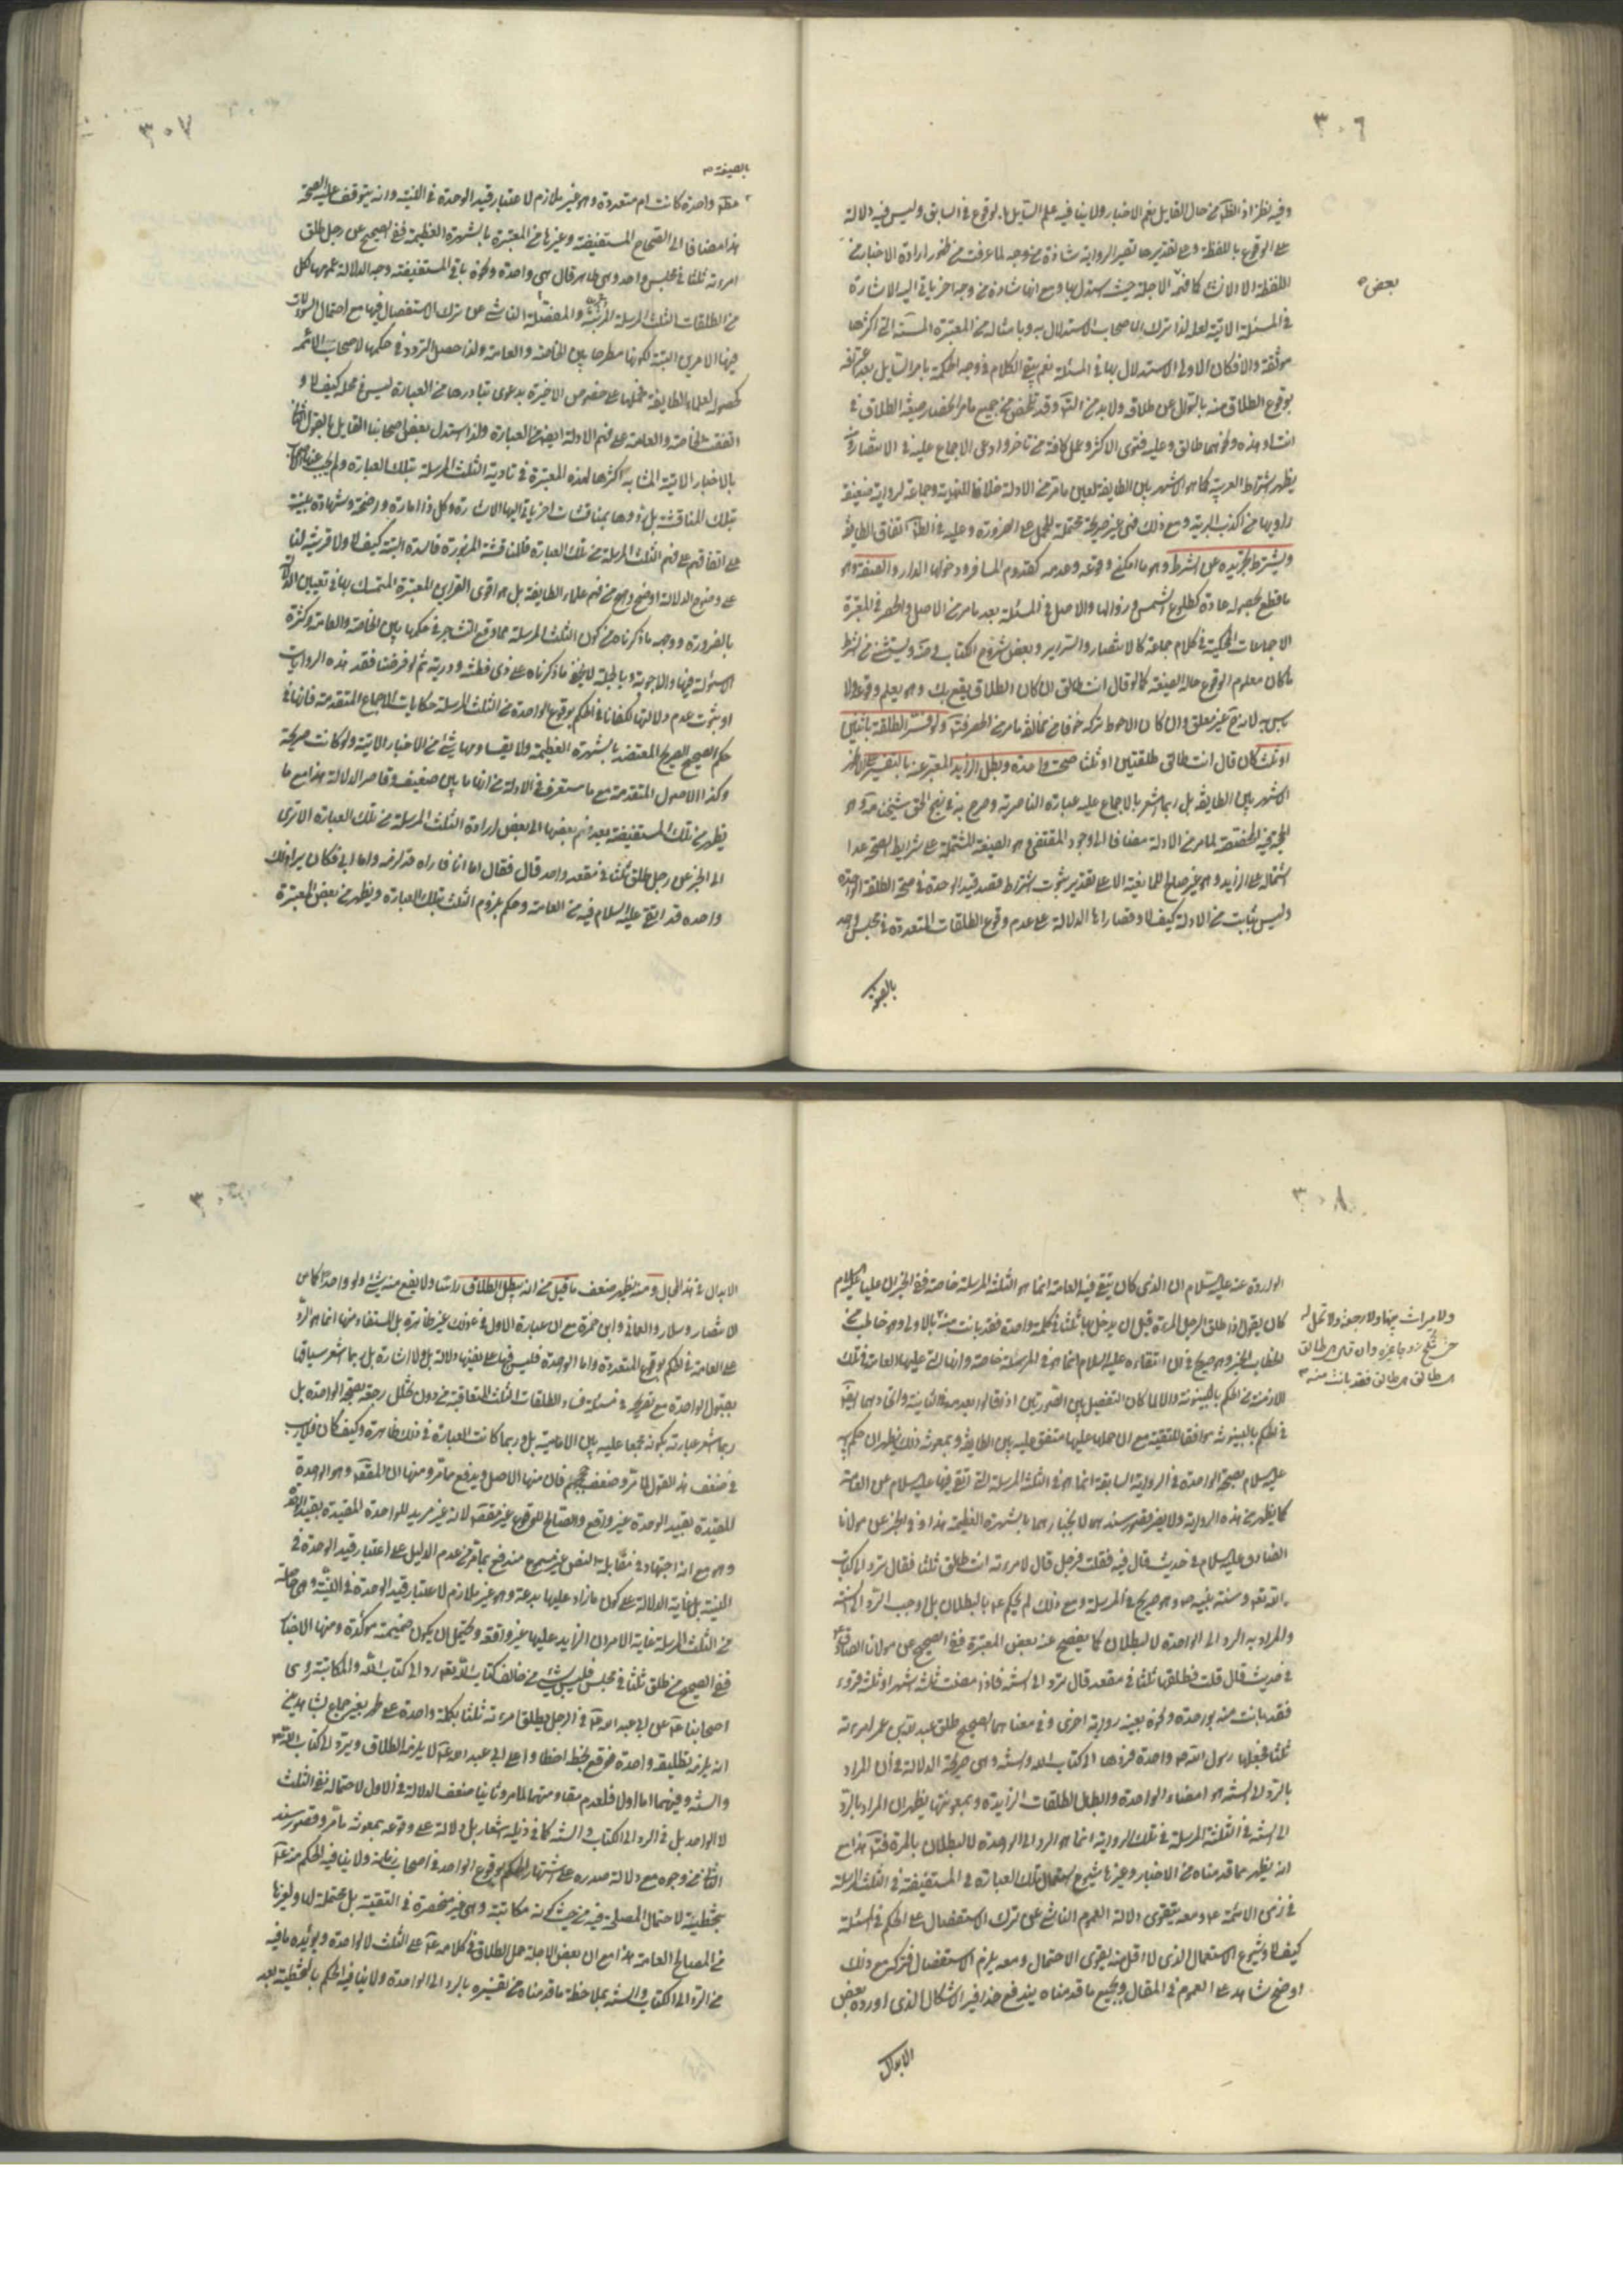 ٣٠٦
وفيه نظر اذ الظ من حال القايل بنعم الاخبار ولا ينافيه علم السايل بالوقوع في السابق وليس فيه دلالة
على الوقوع باللفظة وعلى تقديرها تصير الرواية شاذة من وجه لما عرفت من ظهور ارادة الاخبار من
اللفظة الا الانشاء كما فهمه الاجلة حيث استدل بها ومع انها شاذة من وجه اخر ياتي اليه الاشارة
بعض
في المسئلة الاتية لعله لذا ترك الاصحاب الاستدلال به وبامثاله من المعتبرة المستة التي اكثرها
موثقة والا فكان الاولى الاستدلال بها في المسئلة نعم يبقى الكلام في وجه الحكمة بامر السايل بعد اعترافه
بوقوع الطلاق منه بالسؤال عن طلاقه ولا بد من وقد تلخص من جميع ما مر انحصار صيغة الطلاق في
انت او هذه ونحوهما طالق وعليه فتوى الاكثر وعمل كافة من تاخر وادعى الاجماع عليه في الانتصار ومنه
يظهر اشتراط العربية كما هو الاشهر بين الطايفة لعين ما مر من الادلة خلافا للنهاية وجماعة لرواية ضعيفة
راويها من اكذب البرية ومع ذلك فهي غير صريحة محتملة للحمل على الضرورة وعليه في الظ اتفاق الطايفة
ويشترط تجريده عن الشرط وهو ما امكن وقوعه وعدمه كقدوم المسافر ودخولها الدار والصفة وهو
ما قطع بحصوله عادة كطلوع الشمس وزوالها والاصل في المسئلة بعد ما مر من الاصل والحصر في المعتبرة
الاجماعات المحكية في كلام جماعة كالانتصار والسراير وبعض شروح الكتاب وضة ويستثنى من الشرط
ما كان معلوم الوقوع حالة الصيغة كما لو قال انت طالق ان كان الطلاق يقع بك وهو يعلم وقوعه ولا
باس به لانه غير معلق وان كان الاحوط تركه خوفا من مخالفة ما مر من الحصر فت ولو فسر الطلقة باثنتين
او ثلث كان قال انت طالق طلقتين او ثلثا صحت واحدة وبطل الزايد المعتبر عنه بالتفسير على الاظهر
الاشهر بين الطايفة بل ربما اشعر بالاجماع عليه عبارة الناصرية وصرح به في نهج الحق شيخنا وهو
الحجة المخصصة لما مر من الادلة مضافا الى وجود المقتضي وهو الصيغة المشتملة على شرايط الصحة عدا
اشتماله على الزايد وهو غير صالح للمانعية الا على تقدير ثبوت اشتراط قصد قيد الوحدة في صحة الطلقة الواحدة
وليس بثابت من الادلة كيف لا وقصاراها الدلالة على عدم وقوع الطلقات المتعددة في مجلس واحد
بالصيغة
٣٠٧
بالصيغة
مطلقا واحدة كانت ام متعددة وهو غير ملازم لاعتبار قيد الوحدة في النية وانه يتوقف عليه الصحة
هذا مضافا الى الصحاح المستفيضة وغيرها من المعتبرة بالشهرة العظيمة ففي الصحيح عن رجل طلق
امرءته ثلثا في مجلس واحد وهي طاهر قال هي واحدة ونحوه باقي المستفيضة وجه الدلالة عمومها لكل
من الطلقات الثلث المرسلة المرتبة والمفصلة الناشي عن ترك الاستفصال فيها مع احتمال السؤالات
فيها الامرين البتة لكونها مطرحا بين الخاصة والعامة ولذا حصل التردد في حكمها لاصحاب الائمة
كحصوله لعلماء الطايفة فحملها على خصوص الاخيرة بدعوى تبادرها من العبارة ليس في محله كيف لا و
اتفقت الخاصة والعامة على فهم الاولة ايضا من العبارة ولذا استدل بعض اصحابنا القايل بالقول الثاني
بالاخبار الاتية المشابه اكثرها لهذه المعتبرة في تادية الثلث المرسلة بتلك العبارة ولم يجب عنها الاصحاب
بتلك المناقشة بل ردوها بمناقشات اخر ياتي اليها الاشارة وكل ذا امارة واضحة وشهادة بينة
على اتفاقهم على فهم الثلث المرسلة من تلك العبارة فالمناقشة المزبورة فاسدة البتة كيف لا ولا قرينة لنا
على وضوح الدلالة اوضح وهو من فهم علماء الطايفة بل هو اقوى القراين المعتبرة المتمسك بها في تعيين الدلالة
بالضرورة ووجه ما ذكرناه من كون الثلث المرسلة مما وقع التشاجر في حكمها بين الخاصة والعامة وكثرة
الاسئولة فيها والاجوبة وبالجملة لا يخفى ما ذكرناه على ذي فطنة ودرية ثم لو فرضنا فقد هذه الروايات
او ثبوت عدم دلالتها لكفانا في الحكم بوقوع الواحدة من الثلث المرسلة حكايات الاجماع المتقدمة فانها في
حكم الصحيح الصريح المعتضد بالشهرة العظيمة ولا يقاومها شيء من الاخبار الاتية ولو كانت صريحة
وكذا الاصول المتقدمة مع ما ستعرف في الادلة من انها ما بين ضعيف وقاصر الدلالة هذا مع ما
يظهر من تلك المستفيضة بعد ضم بعضها الى بعض ارادة الثلث المرسلة من تلك العبارة الا ترى
الى الخبر عن رجل طلق ثلثا في مقعد واحد قال فقال اما انا فاراه قد لزمه واما ابي فكان يرى ذلك
واحدة قد اتقى عليه السلام فيه من العامة وحكم بلزوم الثلث بتلك العبارة ويظهر من بعض المعتبرة
٣٠٨
الواردة عنه عليه السلام ان الذي كان يتقي فيه العامة انما هو الثلثة المرسلة خاصة ففي الخبر ان عليا عليه السلام
كان يقول اذا طلق الرجل المرءة قبل ان يدخل بها ثلثا في كلمة واحدة فقد بانت منه بالاولى وهو خاطب من
ولا ميراث بينهما ولا رجعة ولا تحل له
حتى تنكح زوجا غيره وان قال هي طالق
هي طالق هي طالق فقد بانت منه
الخطاب الخبر وهو صريح في ان اتقاءه عليه السلام انما هو في المرسلة خاصة وانها التي عليها العامة في تلك
الازمنة من الحكم بالبينونة والا لما كان التفصيل بين الصورتين اذ وقالوا بعدم الثانية واتحادهما ايضا
في الحكم بالبينونة موافقا للتقية مع ان حملها عليها متفق عليه بين الطايفة وبمعونة ذلك يظهر ان حكمه
عليه السلام بصحة الواحدة في الرواية السابقة انما هو في الثلث المرسلة التي اتقى فيها عليه السلام عن العامة
كما يظهر من هذه الرواية ولا يضر قصور سندهما لانجبارهما بالشهرة العظيمة هذا وفي الخبر عن مولانا
الصادق عليه السلام في حديث قال فيه فقلت فرجل قال لامرءته انت طالق ثلثا فقال ترد الى كتاب
الله تعالى وسنة نبيه ص وهو صريح في المرسلة ومع ذلك لم يحكم ع بالبطلان بل اوجب الرد الى السنة
والمراد به الرد الى الواحدة لا البطلان كما يفصح عنه بعض المعتبرة ففي الصحيح عن مولانا الصادق
في حديث قال قلت فطلقها ثلثا في مقعد قال ترد الى السنة فاذا مضت ثلثة اشهر او ثلثة قروء
فقد بانت منه بواحدة ونحوه بعينه رواية اخرى وفي معناهما الصحيح طلق عبد الله بن عمر امرءته
ثلثا فجعلها رسول الله ص واحدة فردها الى كتاب الله والسنة وهي صريحة الدلالة في ان المراد
بالرد الى السنة هو امضاء الواحدة وابطال الطلقات الزايدة وبمعونتها يظهر ان المراد بالرد
الى السنة في الثلثة المرسلة في تلك الرواية انما هو الرد الى الواحدة لا البطلان بالمرة فت هذا مع
انه يظهر مما قدمناه من الاخبار وغيرها شيوع استعمال تلك العبارة في المستفيضة في الثلث المرسلة
في زمن الائمة ع ومعه يتقوى دلالة العموم الناشي عن ترك الاستفصال على الحكم في المسئلة
كيف لا وشيوع الاستعمال الذي لا اقل منه يقوى الاحتمال ومعه يلزم الاستفصال فتركه مع ذلك
اوضح شاهد على العموم في المقال وبجميع ما قدمناه يندفع حذافير الاشكال الذي اورده بعض
الابدال
٣٠٩
الابدال في هذا المجال ومنه يظهر ضعف ما قيل من انه يبطل الطلاق راسا ولا يقع منه شيء ولو واحدا كما عن
الانتصار وسلار والعماني وابن حمزة مع ان عبارة الاول في ذلك غير ظاهرة بل المستفاد منها انما هو الرد
على العامة في الحكم بوقوع المتعددة واما الواحدة فليس فيها على نفيها دلالة بل ولا اشارة بل ربما اشعر سياقها
بقبول الواحدة مع تصريحه في مسئلة فساد الطلقات الثلث المتعاقبة من دون تخلل رجعة بصحة الواحدة بل
ربما اشعر عبارته بكونه مجمعا عليه بين الامامية بل وربما كانت العبارة في ذلك ظاهرة وكيف كان فلا ريب
في ضعف هذا القول لما مر وضعف حججهم فان منها الاصل ويدفع بما مر ومنها ان المقصود هو الواحدة
المقيدة بقيد الوحدة غير واقع والصالح للوقوع غير مقصود لانه غير مريد للواحدة المقيدة بقيد الوحدة
وهو مع انه اجتهاد في مقابلة النص غير مسموع مندفع بما مر من عدم الدليل على اعتبار قيد الوحدة في
النية بل غاية الدلالة على كون ما زاد عليها بدعة وهو غير ملازم لاعتبار قيد الوحدة في النية وهي حاصلة
من الثلث المرسلة غاية الامر ان الزايد عليها غير واقعة ويحتمل ان يكون ضميمة موكدة ومنها الاخبار
ففي الصحيح من طلق ثلثا في مجلس فليس بشيء من خالف كتاب الله تعالى رد الى كتاب الله والمكاتبة روى
اصحابنا عن ابي عبد الله في الرجل يطلق امرءته ثلثا بكلمة واحدة على طهر بغير جماع بشاهدين
انه يلزمه تطليقة واحدة فوقع بخطه اخطاوا على ابي عبد الله ع لا يلزمه الطلاق ويرد الى كتاب الله
والسنة وفيهما اما اولا فلعدم مقاومتهما لما مر وثانيا ضعف الدلالة في الاول لاحتماله نفي الثلث
لا الواحد بل في الرد الى الكتاب والسنة كما في ذيله اشعار بل دلالة على وقوعه بمعونة ما مر وقصور سند
الثاني من وجوه مع دلالة صدره على اشتهار الحكم بوقوع الواحد في اصحاب زمانه ولا ينافيه الحكم منه ع
بتخطئة لاحتمال المصلحة فيه من حيث كونه مكاتبة وهي غير منحصرة في التقية بل محتملة لها ولغيرها
من المصالح العامة هذا مع ان بعض الاجلة حمل الطلاق في كلامه ع على الثلث لا الواحدة ويؤيده ما فيه
من الرد الى الكتاب والسنة بملاحظة ما قدمناه من تفسيره بالرد الى الواحدة ولا ينافيه الحكم بالتخطئة بعد